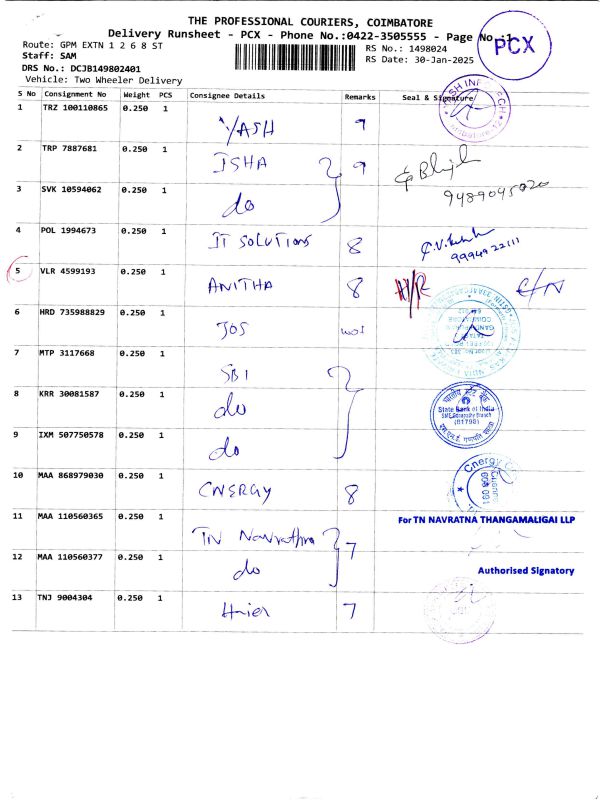 THE PROFESSIONAL COURIERS, COIMBATORE
Delivery Runsheet - PCX - Phone No.:0422-3505555 - Page No.:1
PCX
Route: GPM EXTN 1 2 6 8 ST
RS No.: 1498024
Staff: SAM
RS Date: 30-Jan-2025
DRS No.: DCJB149802401
Vehicle: Two Wheeler Delivery
S No Consignment No Weight PCS Consignee Details Remarks Seal & Signature
1 TRZ 100110865 0.250 1 YASH 9
2 TRP 7887681 0.250 1 ISHA 9
3 SVK 10594062 0.250 1 do
9489045020
4 POL 1994673 0.250 1 IT SOLUTIONS 8
9994922111
5 VLR 4599193 0.250 1 ANITHA 8 H/R C/N
6 HRD 735988829 0.250 1 JOS
7 MTP 3117668 0.250 1 SBI
8 KRR 30081587 0.250 1 do
State Bank of India
9 IXM 507750578 0.250 1 do
10 MAA 868979030 0.250 1 CNERGY 8
Cnergy
11 MAA 110560365 0.250 1 TN Navrathna 7
For TN NAVRATNA THANGAMALIGAI LLP
12 MAA 110560377 0.250 1 do
Authorised Signatory
13 TNJ 9004304 0.250 1 Haier 7